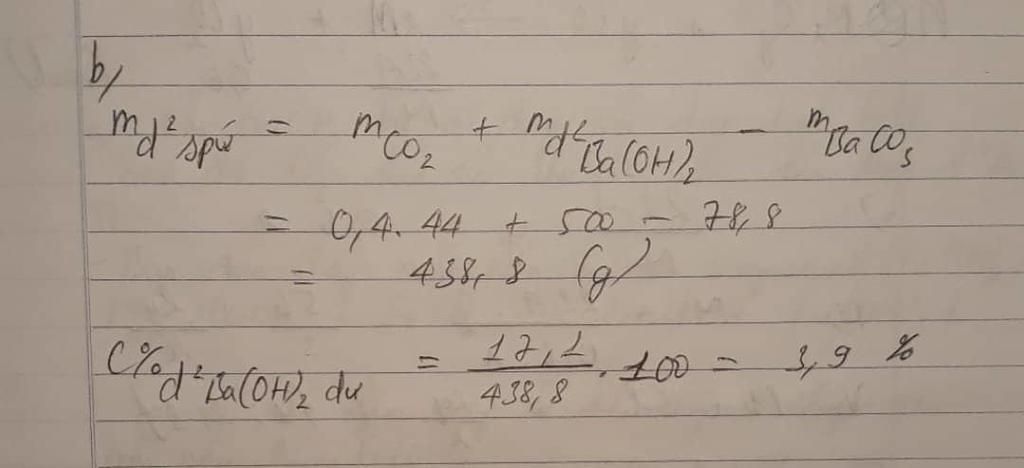 b,
m d² spứ = m CO₂ + m d² Ba(OH)₂ - m BaCO₃
= 0,4. 44 + 500 - 78, 8
= 438, 8 (g)
C% d² Ba(OH)₂ dư = 17,1 / 438,8 . 100 = 3,9 %